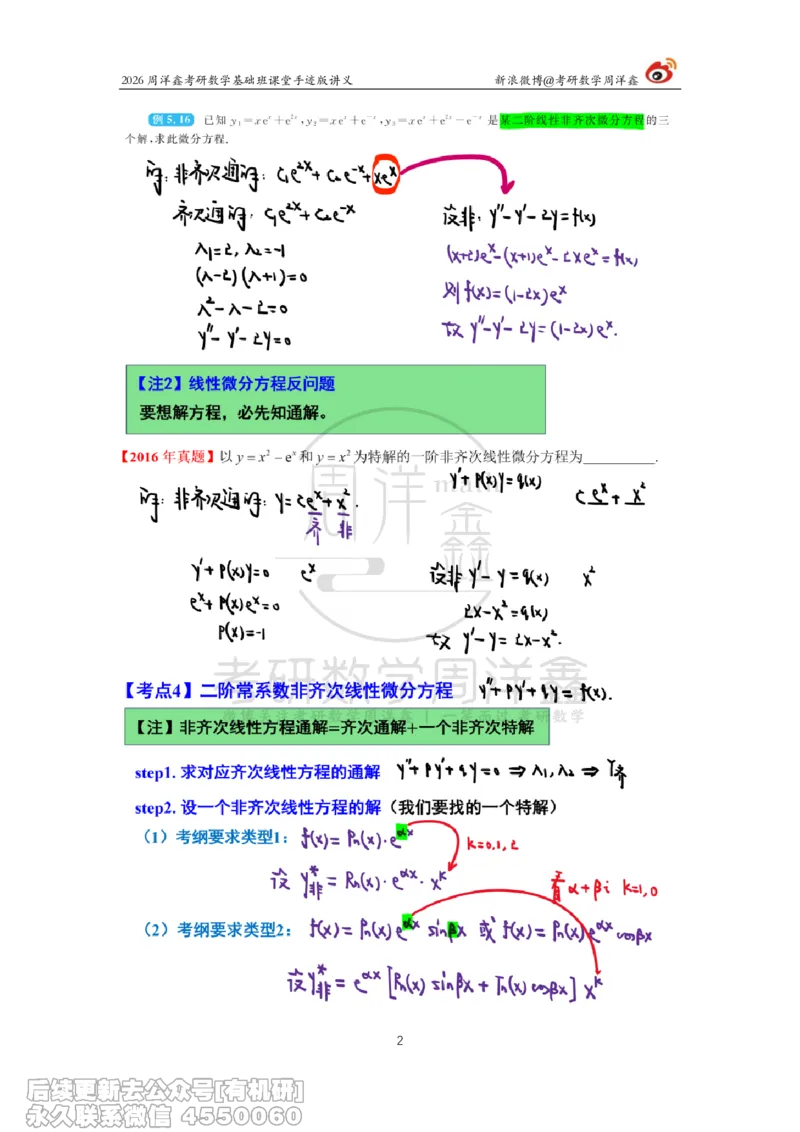 2026 周洋鑫考研数学基础班课堂手迹版讲义 新浪微博@考研数学周洋鑫
例 5.16 已知 y₁=xeˣ+e²ˣ,y₂=xeˣ+e⁻ˣ,y₃=xeˣ+e²ˣ−e⁻ˣ 是某二阶线性非齐次微分方程的三
个解,求此微分方程.
的:非齐次通的:C₁e²ˣ+C₂e⁻ˣ+xeˣ
齐次通的:C₁e²ˣ+C₂e⁻ˣ 设非:y″−y′−2y=f(x)
λ₁=2, λ₂=−1 (x+2)eˣ−(x+1)eˣ−2xeˣ=f(x)
(λ−2)(λ+1)=0 则 f(x)=(1−2x)eˣ
λ²−λ−2=0
y″−y′−2y=0 故 y″−y′−2y=(1−2x)eˣ.
【注2】线性微分方程反问题
要想解方程，必先知通解。
【2016 年真题】以 y=x²−eˣ 和 y=x² 为特解的一阶非齐次线性微分方程为__________.
y′+p(x)y=q(x)
的:非齐次通的:y=Ceˣ+x². Ceˣ+x²
齐 非
y′+p(x)y=0 eˣ 设非 y′−y=q(x) x²
eˣ+p(x)eˣ=0 2x−x²=q(x)
p(x)=−1 故 y′−y=2x−x².
周洋鑫
考研数学周洋鑫
【考点4】二阶常系数非齐次线性微分方程 y″+py′+qy=f(x).
【注】非齐次线性方程通解=齐次通解+一个非齐次特解
step1. 求对应齐次线性方程的通解 y″+py′+qy=0 ⇒ λ₁,λ₂ ⇒ Y齐
step2. 设一个非齐次线性方程的解（我们要找的一个特解）
（1）考纲要求类型1： f(x)=Pₙ(x)·eᵅˣ k=0,1,2
设 y*非=Rₙ(x)·eᵅˣ·xᵏ
看α+βi k=1,0
（2）考纲要求类型2： f(x)=Pₙ(x)eᵅˣ sinβx 或 f(x)=Pₙ(x)eᵅˣ cosβx
设y*非=eᵅˣ[Rₙ(x) sinβx+Tₙ(x) cosβx] xᵏ
2
后续更新去公众号[有机研]
永久联系微信 4550060